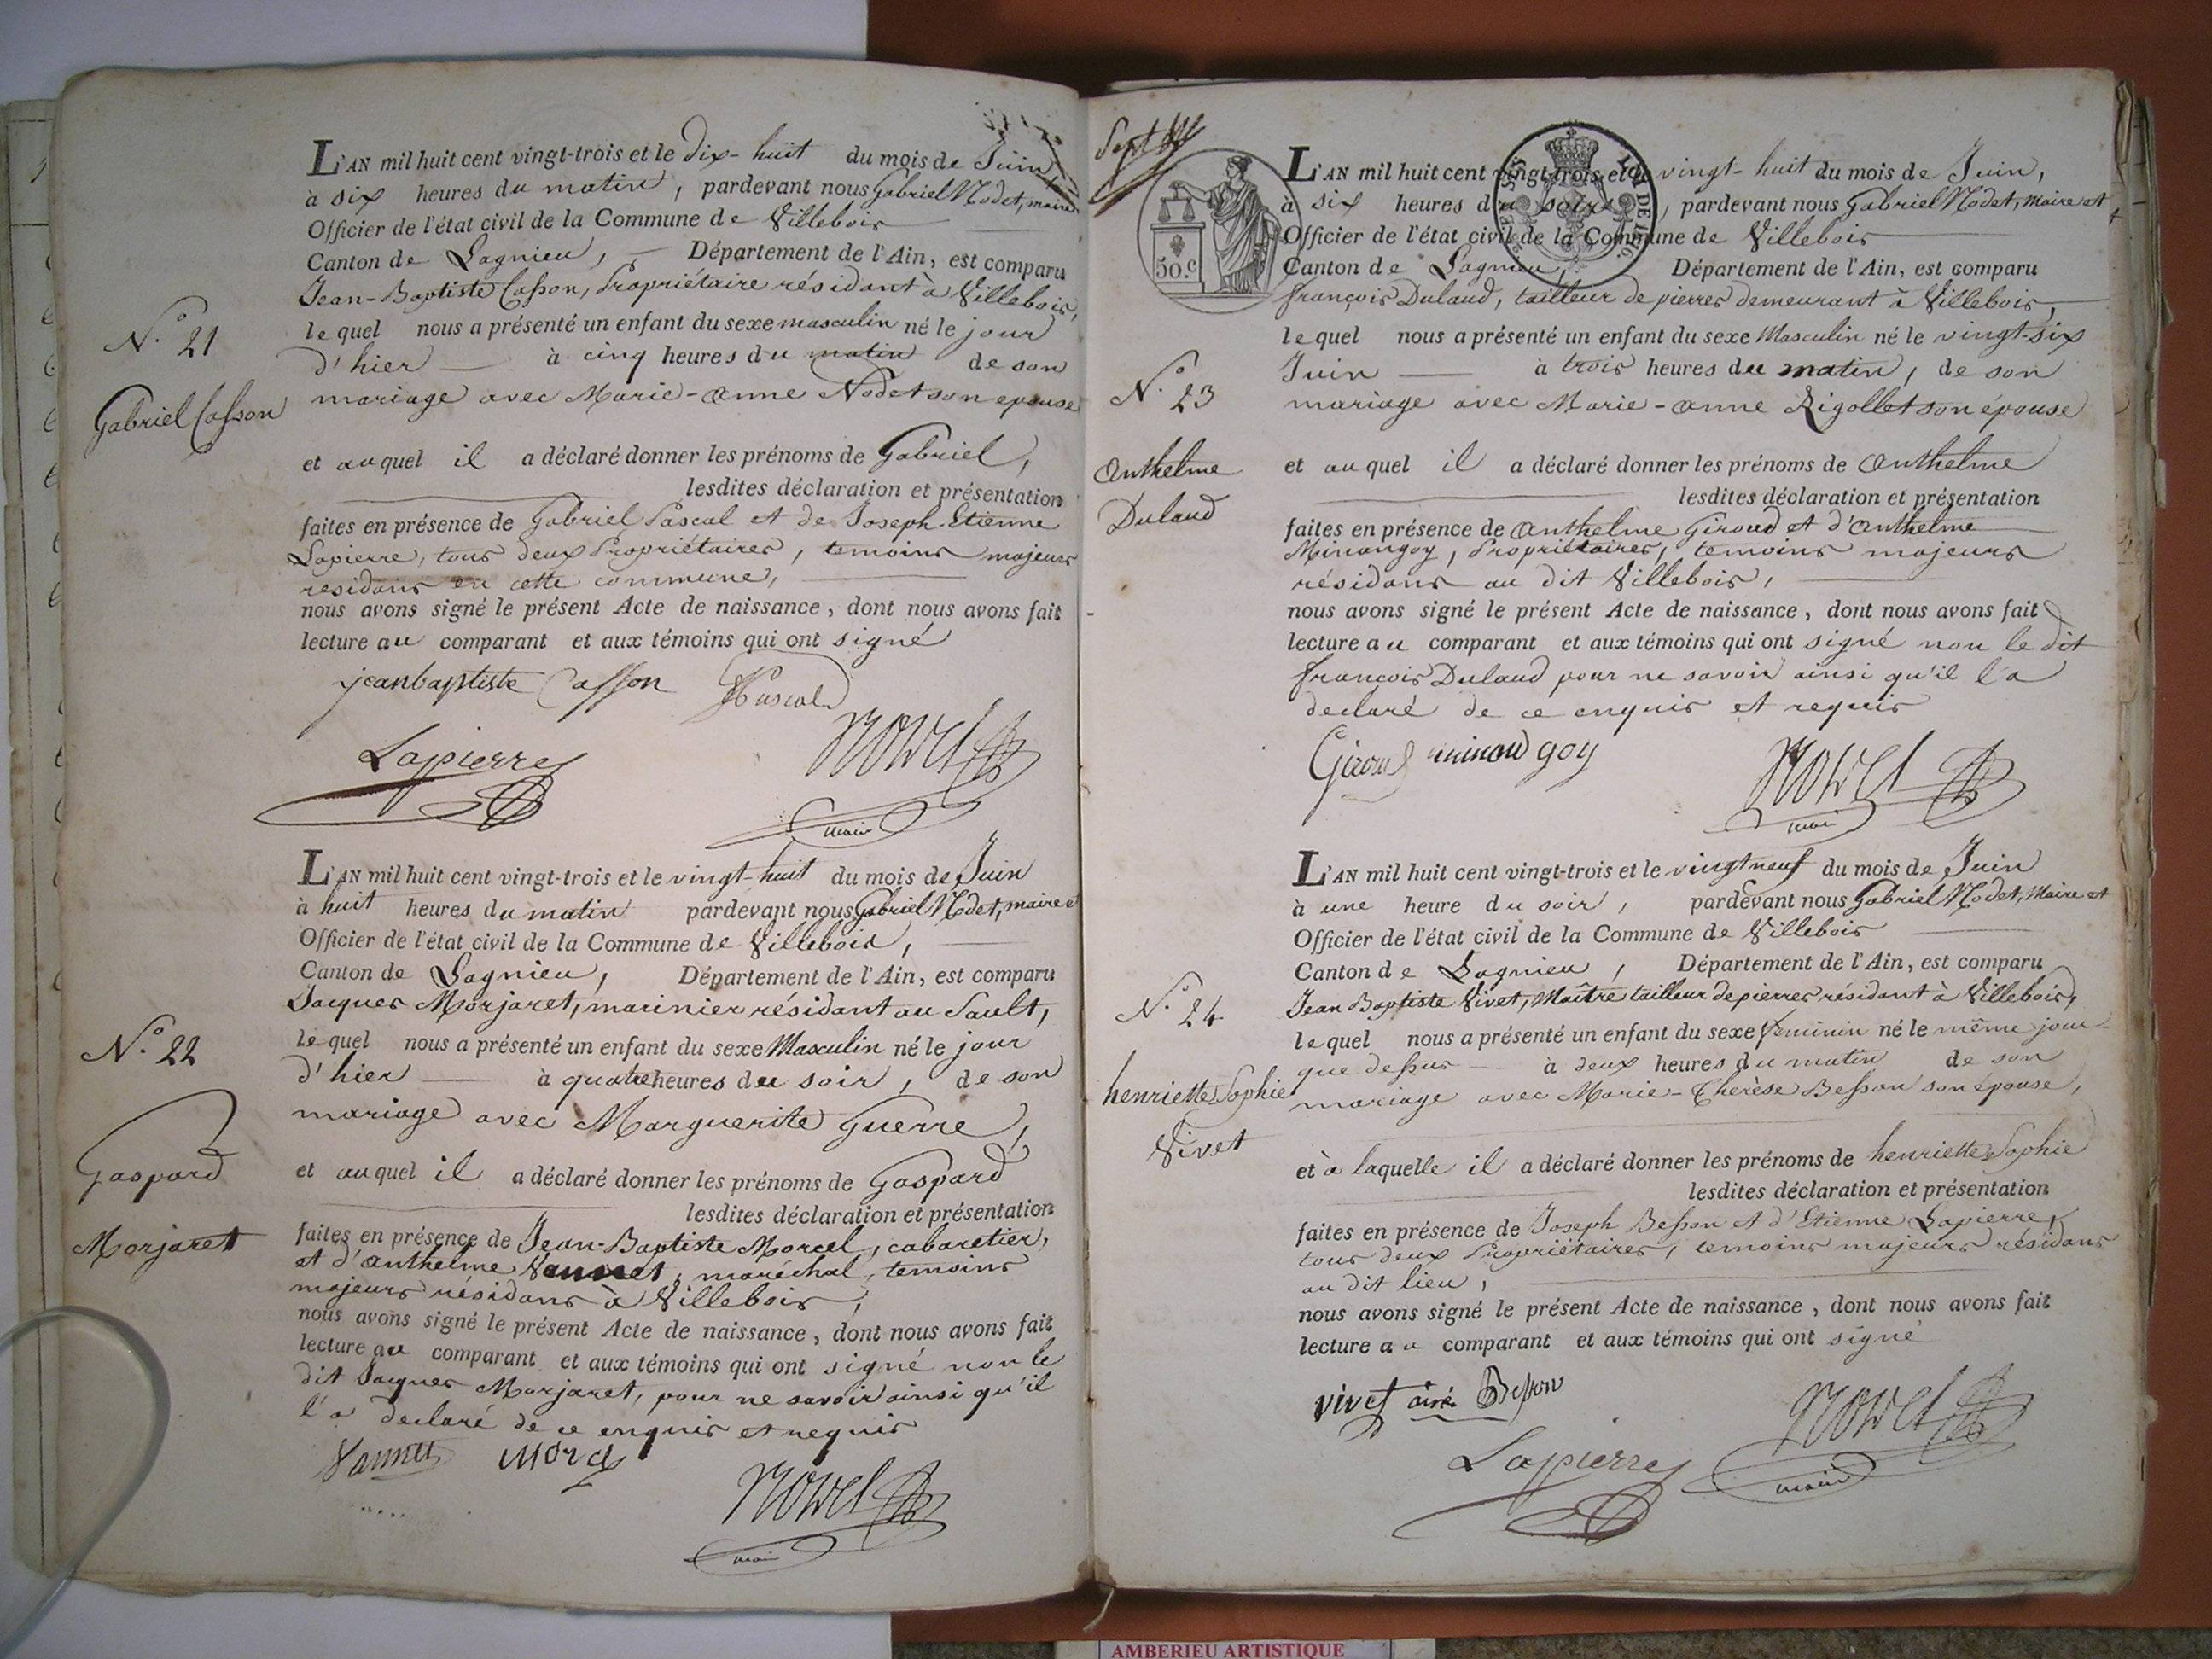 L'AN mil huit cent vingt-trois et le Dix-huit du mois de Juin
à six heures du matin, pardevant nous Gabriel Nodet, maire
Officier de l'état civil de la Commune de Villebois
Canton de Lagnieu, Département de l'Ain, est comparu
Jean-Baptiste Casson, Propriétaire résidant à Villebois,
le quel nous a présenté un enfant du sexe masculin né le jour
d'hier à cinq heures du matin de son
mariage avec Marie-anne Nodet son epouse
N.° 21
Gabriel Casson
et auquel il a déclaré donner les prénoms de Gabriel,
lesdites déclaration et présentation
faites en présence de Gabriel Pascal et de Joseph-Etienne
Lapierre, tous deux Propriétaires, temoins majeurs
residans en cette commune,
nous avons signé le présent Acte de naissance, dont nous avons fait
lecture au comparant et aux témoins qui ont signé
jeanbaptiste Casson Pascal
Lapierre Nodet
maire
L'AN mil huit cent vingt-trois et le vingt-huit du mois de Juin
à huit heures du matin pardevant nous Gabriel Nodet, maire et
Officier de l'état civil de la Commune de Villebois,
Canton de Lagnieu, Département de l'Ain, est comparu
Jacques Morjaret, marinier résidant au Sault,
le quel nous a présenté un enfant du sexe Masculin né le jour
d'hier à quatre heures du soir, de son
mariage avec Marguerite Guerre,
N.° 22
Gaspard
Morjaret
et auquel il a déclaré donner les prénoms de Gaspard
lesdites déclaration et présentation
faites en présence de Jean-Baptiste Morcel, cabaretier,
et d'anthelme Vannet, maréchal, temoins
majeurs résidans à Villebois,
nous avons signé le présent Acte de naissance, dont nous avons fait
lecture au comparant et aux témoins qui ont signé non le
dit Jacques Morjaret, pour ne savoir ainsi qu'il
l'a declaré de ce enquis et requis
Vannet Morcel
Nodet
maire
Sept
50.c
L'AN mil huit cent vingt-trois et le vingt-huit du mois de Juin,
à six heures du soir, pardevant nous Gabriel Nodet, maire et
Officier de l'état civil de la Commune de Villebois
Canton de Lagnieu, Département de l'Ain, est comparu
françois Dulaud, tailleur de pierres demeurant à Villebois
le quel nous a présenté un enfant du sexe Masculin né le vingt-six
Juin à trois heures du matin, de son
mariage avec Marie-anne Rigollet son épouse
N.° 23
anthelme
Dulaud
et auquel il a déclaré donner les prénoms de anthelme
lesdites déclaration et présentation
faites en présence de anthelme Giroud et d'anthelme
Minangoy, Propriétaires, temoins majeurs
résidans au dit Villebois,
nous avons signé le présent Acte de naissance, dont nous avons fait
lecture au comparant et aux témoins qui ont signé non le dit
françois Dulaud pour ne savoir ainsi qu'il l'a
declaré de ce enquis et requis
Giroud minan goy Nodet
maire
L'AN mil huit cent vingt-trois et le vingt neuf du mois de Juin
à une heure du soir, pardevant nous Gabriel Nodet, Maire et
Officier de l'état civil de la Commune de Villebois
Canton de Lagnieu, Département de l'Ain, est comparu
Jean Baptiste Vivet, Maître tailleur de pierres résidant à Villebois,
le quel nous a présenté un enfant du sexe feminin né le même jour
que dessus à deux heures du matin de son
mariage avec Marie-Therèse Besson son épouse,
N.° 24
henriette Sophie
Vivet
et à laquelle il a déclaré donner les prénoms de henriette Sophie
lesdites déclaration et présentation
faites en présence de Joseph Besson et d'Etienne Lapierre,
tous deux Propriétaires, temoins majeurs résidans
au dit lieu,
nous avons signé le présent Acte de naissance, dont nous avons fait
lecture au comparant et aux témoins qui ont signé
vivet ainé Besson Nodet
Lapierre maire
AMBERIEU ARTISTIQUE